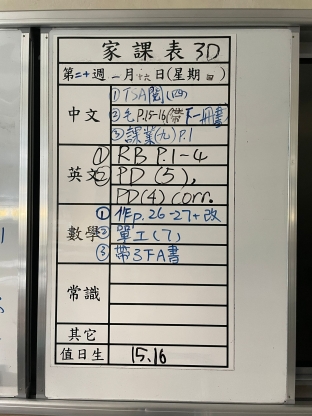 家課表 3D
第二十週 一月十六日(星期四)
中文
① TSA閱(四)
② 毛P.15-16(帶下一冊書)
③ 課業(九)P.1
英文
① RB P.1-4
② PD (5),
PD(4) corr.
數學
① 作p.26-27+改
② 單工(7)
③ 帶3下A書
常識
其它
值日生 15.16